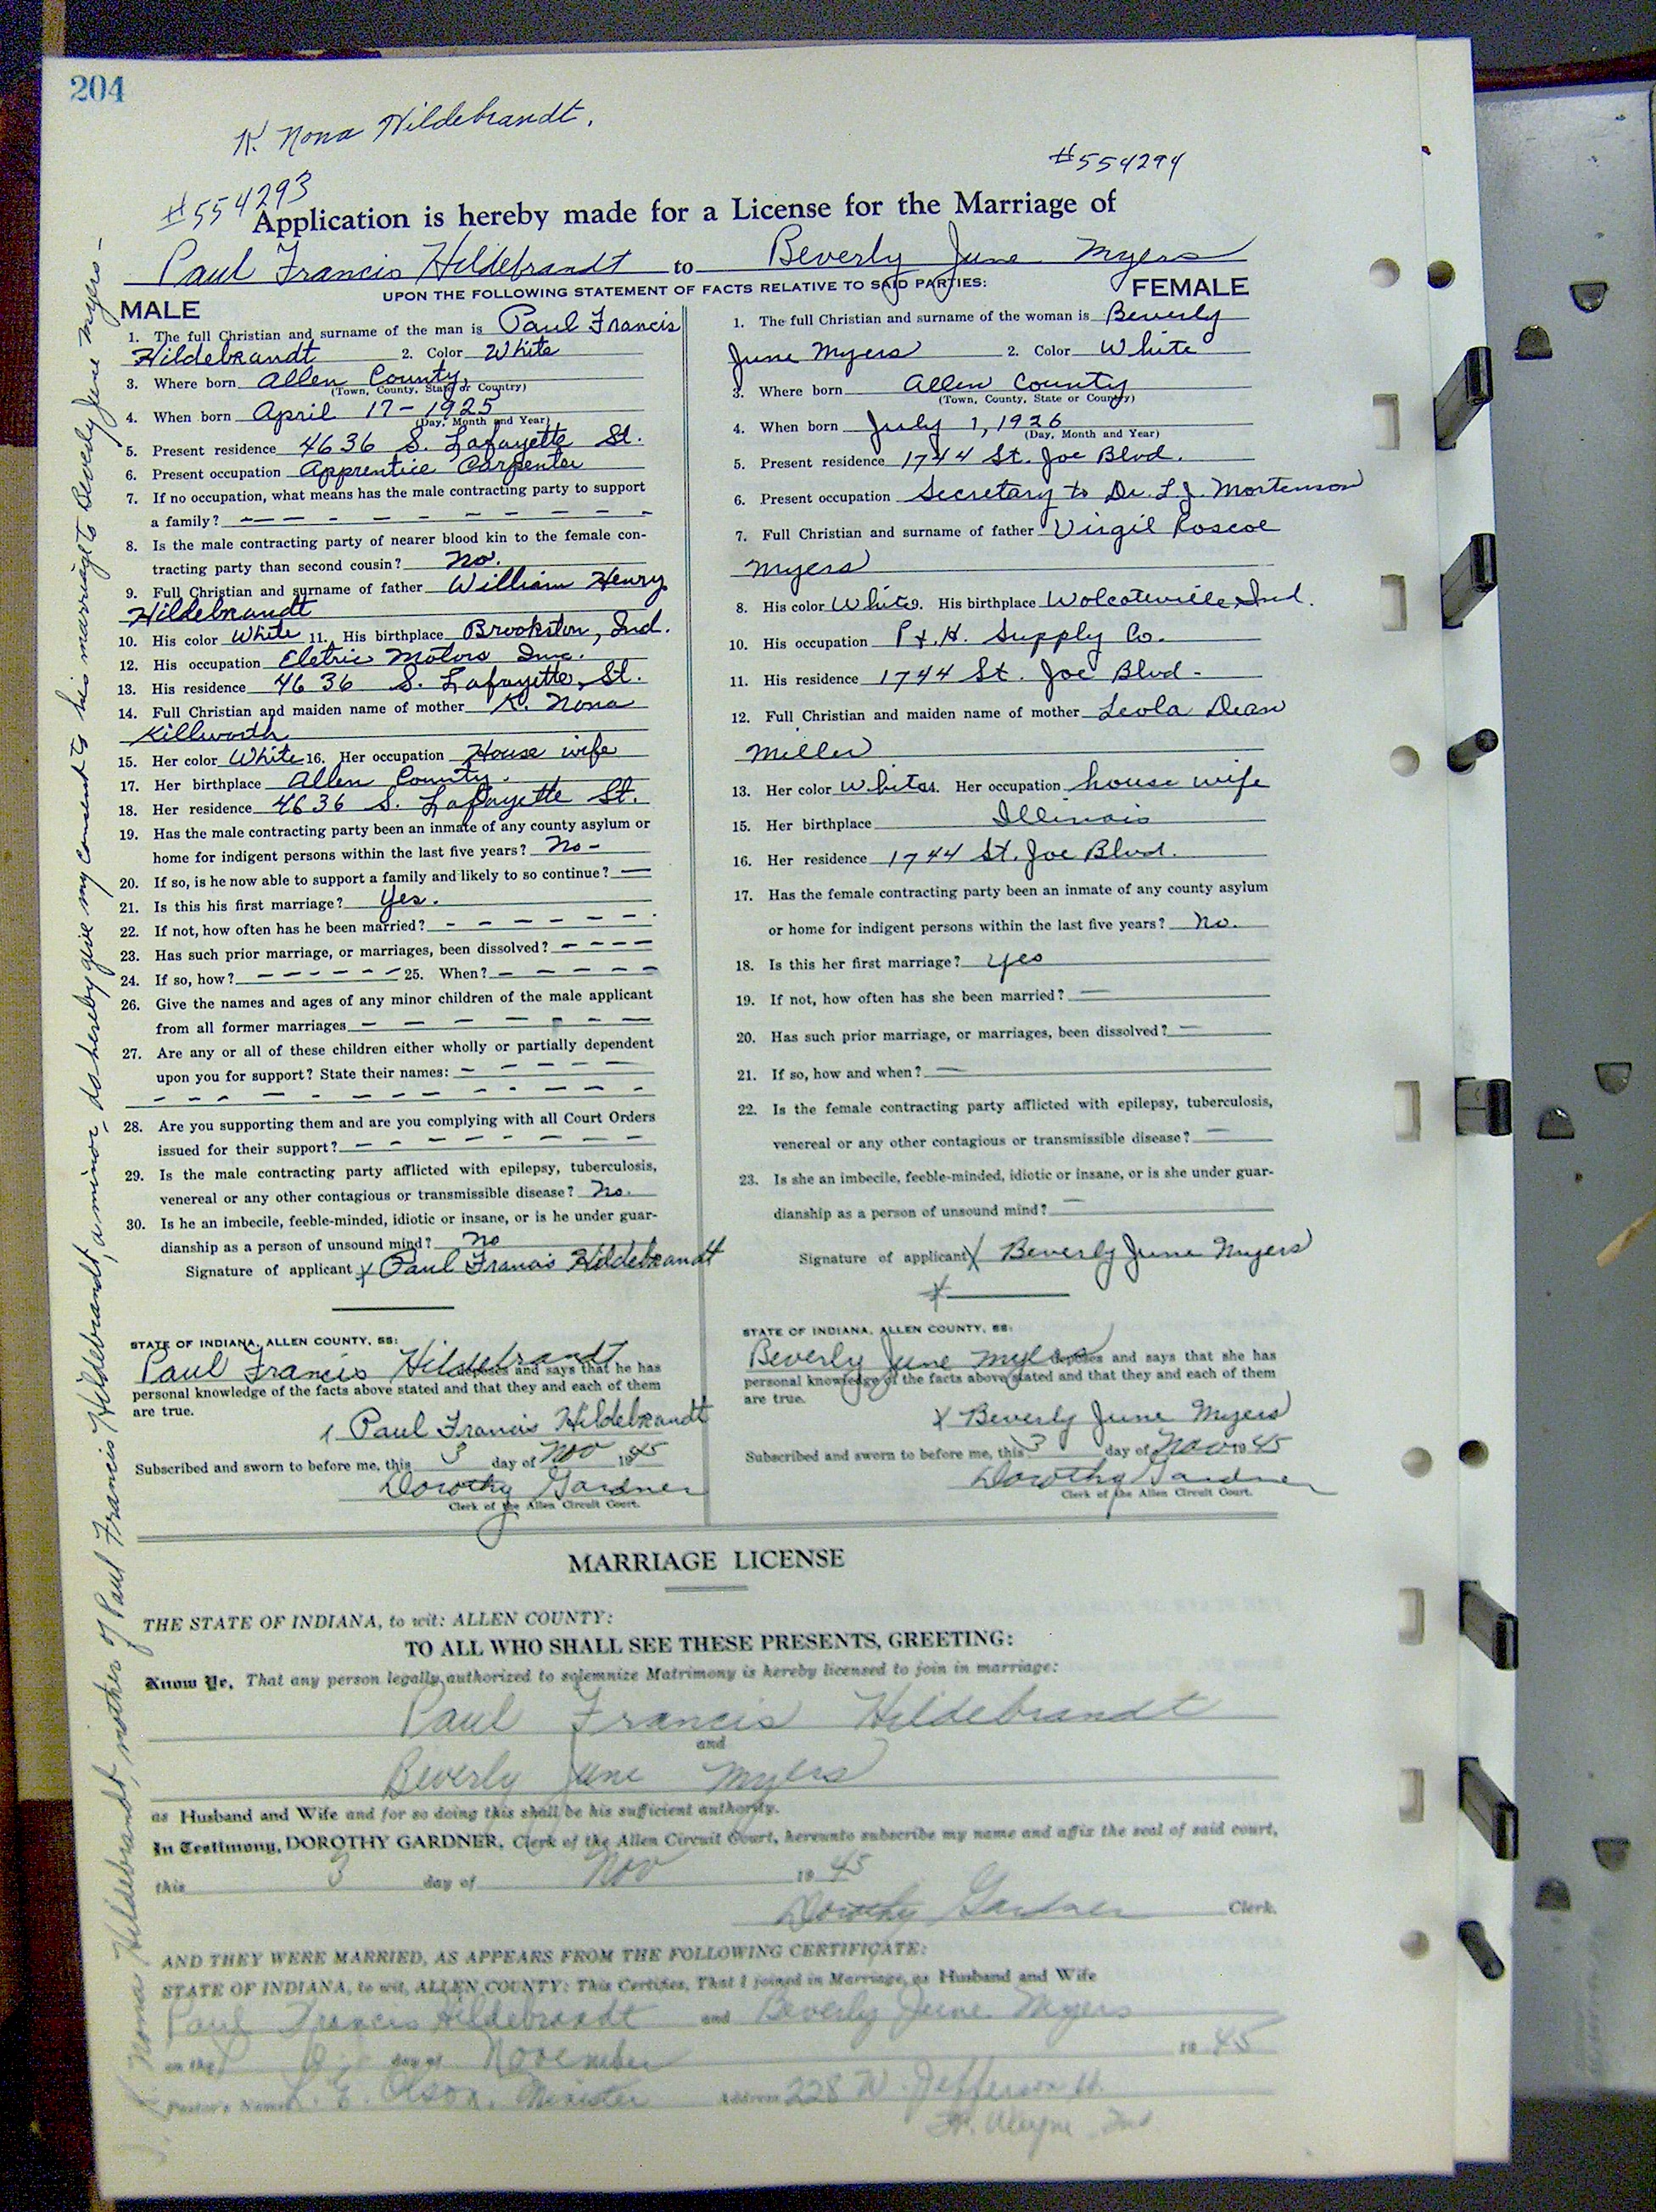 204
K. Nona Hildebrandt.
#554293
#554294
Application is hereby made for a License for the Marriage of
Paul Francis Hildebrandt to Beverly June Myers
UPON THE FOLLOWING STATEMENT OF FACTS RELATIVE TO SAID PARTIES:
MALE
1. The full Christian and surname of the man is Paul Francis
Hildebrandt 2. Color White
3. Where born Allen County,
(Town, County, State or Country)
4. When born April 17-1925
(Day, Month and Year)
5. Present residence 4636 S. Lafayette St.
6. Present occupation Apprentice Carpenter
7. If no occupation, what means has the male contracting party to support
a family? — — — — — — — — —
8. Is the male contracting party of nearer blood kin to the female con-
tracting party than second cousin? No.
9. Full Christian and surname of father William Henry
Hildebrandt
10. His color White 11. His birthplace Brookston, Ind.
12. His occupation Eletric Motors Inc.
13. His residence 4636 S. Lafayette, St.
14. Full Christian and maiden name of mother K. Nona
Killworth
15. Her color White 16. Her occupation House wife
17. Her birthplace Allen County.
18. Her residence 4636 S. Lafayette St.
19. Has the male contracting party been an inmate of any county asylum or
home for indigent persons within the last five years? No-
20. If so, is he now able to support a family and likely to so continue? —
21. Is this his first marriage? Yes.
22. If not, how often has he been married? - - - - - -
23. Has such prior marriage, or marriages, been dissolved? - - - -
24. If so, how? - - - - - - 25. When? - - - - -
26. Give the names and ages of any minor children of the male applicant
from all former marriages - - - - - - -
27. Are any or all of these children either wholly or partially dependent
upon you for support? State their names: - - - - -
- - - - - - - - - - - -
28. Are you supporting them and are you complying with all Court Orders
issued for their support? - - - - - - - -
29. Is the male contracting party afflicted with epilepsy, tuberculosis,
venereal or any other contagious or transmissible disease? No.
30. Is he an imbecile, feeble-minded, idiotic or insane, or is he under guar-
dianship as a person of unsound mind? No
Signature of applicant x Paul Francis Hildebrandt
STATE OF INDIANA, ALLEN COUNTY, SS:
Paul Francis Hildebrandt deposes and says that he has
personal knowledge of the facts above stated and that they and each of them
are true.
x Paul Francis Hildebrandt
Subscribed and sworn to before me, this 3 day of Nov 1945
Dorothy Gardner
Clerk of the Allen Circuit Court.
FEMALE
1. The full Christian and surname of the woman is Beverly
June Myers 2. Color White
3. Where born Allen County
(Town, County, State or Country)
4. When born July 1, 1926
(Day, Month and Year)
5. Present residence 1744 St. Joe Blvd.
6. Present occupation Secretary to Dr. L.J. Mortenson
7. Full Christian and surname of father Virgil Roscoe
Myers
8. His color White. His birthplace Wolcoteville, Ind.
10. His occupation P.&.H. Supply Co.
11. His residence 1744 St. Joe Blvd-
12. Full Christian and maiden name of mother Leola Dean
Miller
13. Her color White 14. Her occupation house wife
15. Her birthplace Illinois
16. Her residence 1744 St. Joe Blvd.
17. Has the female contracting party been an inmate of any county asylum
or home for indigent persons within the last five years? No.
18. Is this her first marriage? yes
19. If not, how often has she been married? —
20. Has such prior marriage, or marriages, been dissolved? —
21. If so, how and when? —
22. Is the female contracting party afflicted with epilepsy, tuberculosis,
venereal or any other contagious or transmissible disease? —
23. Is she an imbecile, feeble-minded, idiotic or insane, or is she under guar-
dianship as a person of unsound mind? —
Signature of applicant x Beverly June Myers
x
STATE OF INDIANA, ALLEN COUNTY, SS:
Beverly June Myers deposes and says that she has
personal knowledge of the facts above stated and that they and each of them
are true.
x Beverly June Myers
Subscribed and sworn to before me, this 3 day of Nov 1945
Dorothy Gardner
Clerk of the Allen Circuit Court.
MARRIAGE LICENSE
THE STATE OF INDIANA, to wit: ALLEN COUNTY:
TO ALL WHO SHALL SEE THESE PRESENTS, GREETING:
Know Ye, That any person legally authorized to solemnize Matrimony is hereby licensed to join in marriage:
Paul Francis Hildebrandt
and
Beverly June Myers
as Husband and Wife and for so doing this shall be his sufficient authority.
In Testimony, DOROTHY GARDNER, Clerk of the Allen Circuit Court, hereunto subscribe my name and affix the seal of said court,
this 3 day of Nov 1945
Dorothy Gardner Clerk.
AND THEY WERE MARRIED, AS APPEARS FROM THE FOLLOWING CERTIFICATE:
STATE OF INDIANA, to wit, ALLEN COUNTY: This Certifies, That I joined in Marriage, as Husband and Wife
Paul Francis Hildebrandt and Beverly June Myers
on the day of November 1945
Pastor's Name E. Olson, Minister Address 228 W. Jefferson St.
Ft. Wayne, Ind
Nona Hildebrandt, mother of Paul Francis Hildebrandt, a minor, do hereby give my consent to his marriage to Beverly June Myers-